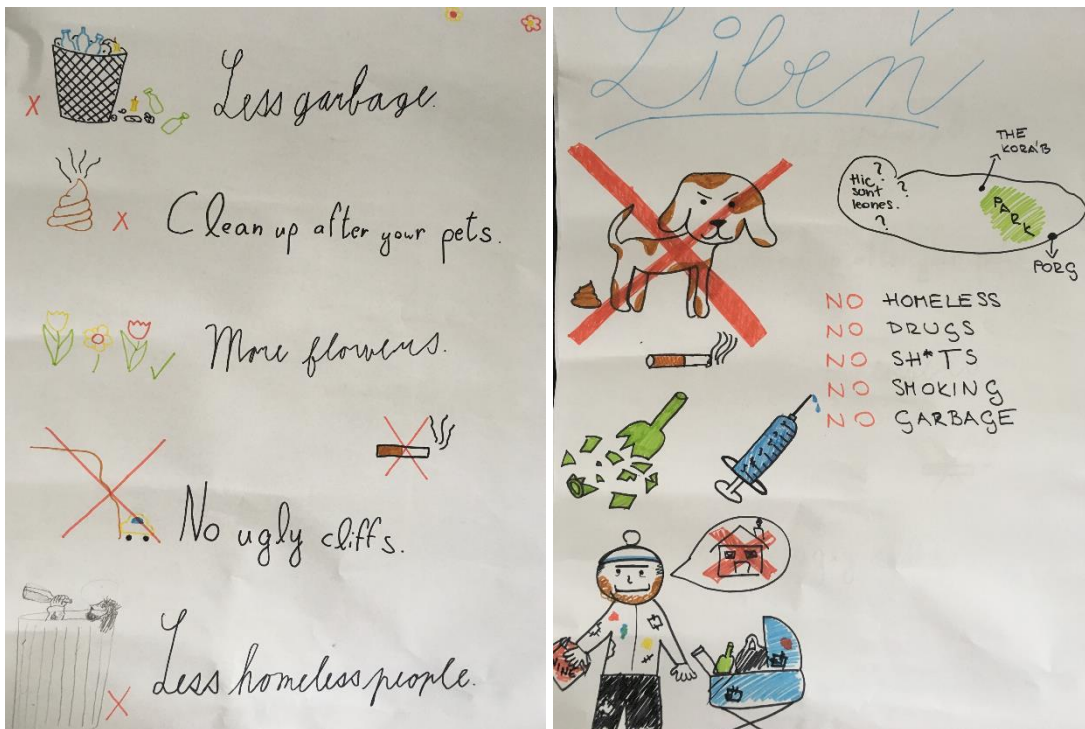 Less garbage.
Clean up after your pets.
More flowers.
No ugly cliffs.
Less homeless people.
Libeň
THE
KORÁB
?
Hic
sont
leones.
?
?
PARK
PORG
NO HOMELESS
NO DRUGS
NO SH*TS
NO SMOKING
NO GARBAGE